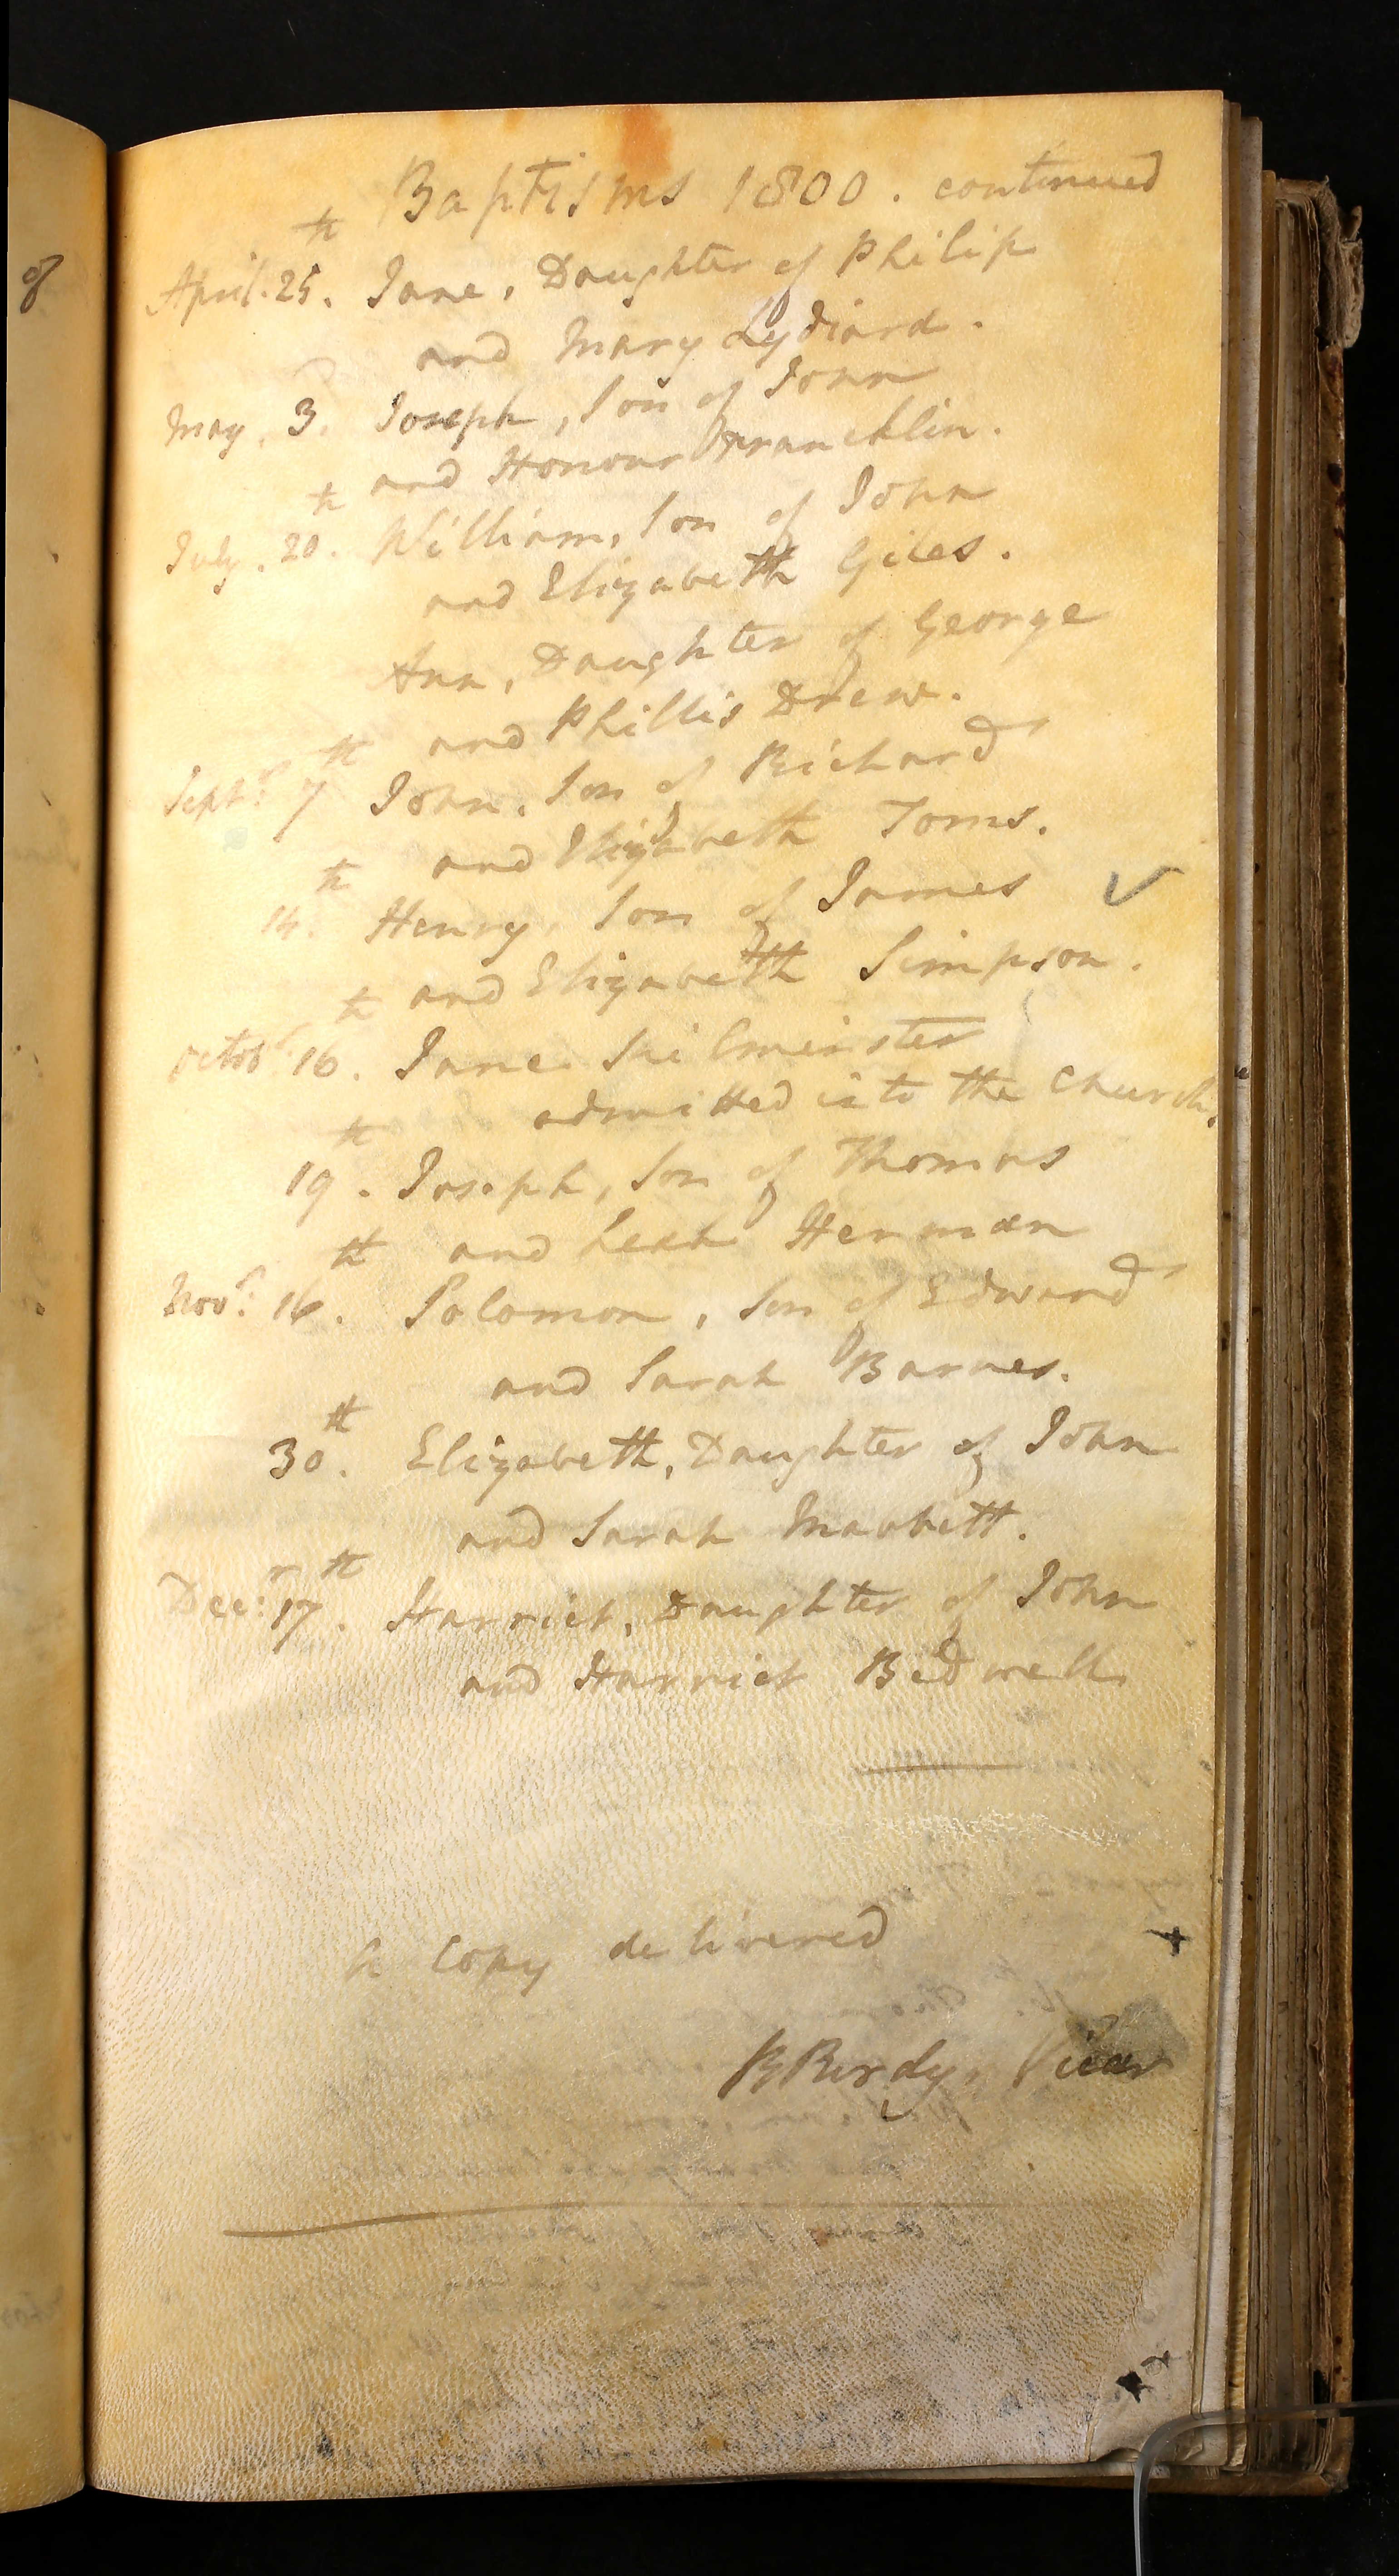 Baptisms 1800. continued
April. 25th. Jane, Daughter of Philip
and Mary Lydiard.
May. 3. Joseph, Son of John
and Honour Francklin.
July. 20th. William, Son of John
and Elizabeth Giles.
Ann, Daughter of George
and Phillis Drew.
Septr: 7th John, Son of Richard
and Elizabeth Toms.
14th. Henry, Son of James
and Elizabeth Simpson.
Octobr: 16th. Jane
admitted into the Church.
19th. Joseph, Son of Thomas
and Leah Herman
Novr: 16th. Solomon, Son of Edward
and Sarah Barnes.
30th. Elizabeth, Daughter of John
and Sarah
Decr: 17th. Harriet, Daughter of John
and Harriet Bedwell
A Copy delivered
R Purdy, Vicar
of